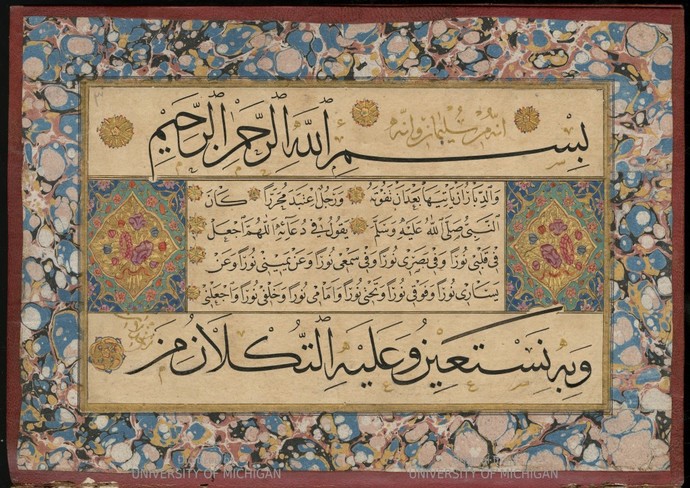 انه من سليمان وانه
بسم الله الرحمن الرحيم
والدبار ان ياتيها بعد ان تفوته ورجل اعتبد محررا كان
النبي صلى الله عليه وسلم يقول في دعائه اللهم اجعل
في قلبي نورا وفي بصري نورا وفي سمعي نورا وعن يميني نورا وعن
يساري نورا وفوقي نورا وتحتي نورا وامامي نورا وخلفي نورا واجعلني
وبه نستعين وعليه التكلان من
UNIVERSITY OF MICHIGAN
UNIVERSITY OF MICHIGAN